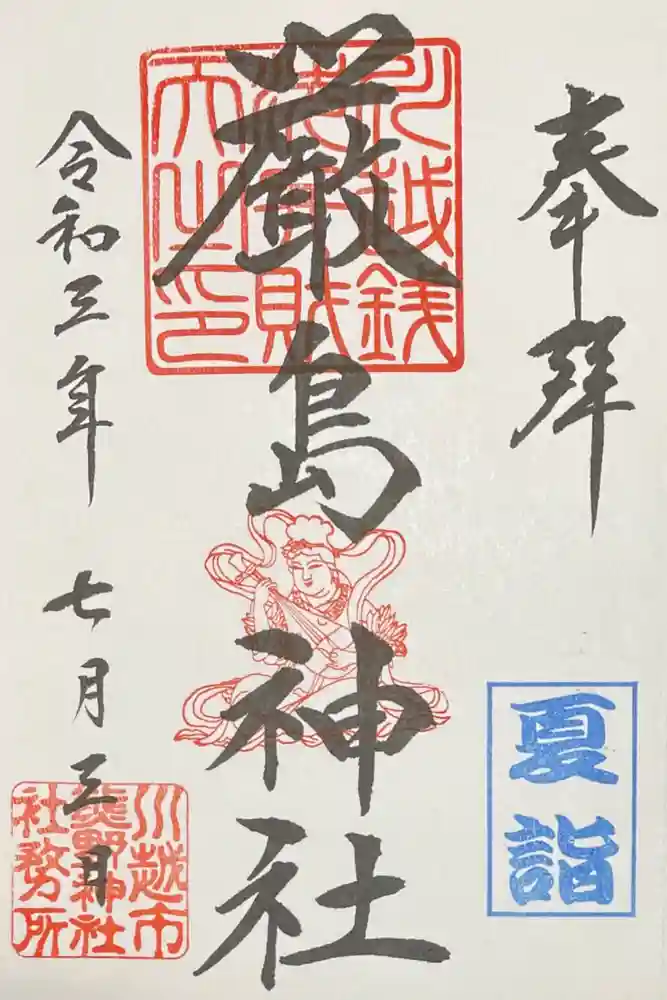 奉拝
夏詣
厳島神社
川越銭
洗弁財
天之印
令和三年
七月三日
川越市
熊野神社
社務所